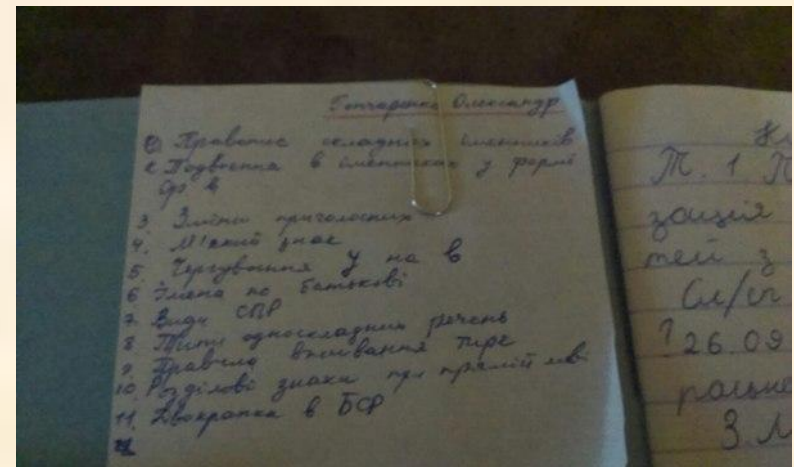 Гончаренко Олександр
1 Правопис складних іменників
2 Подвоєння в іменниках у формі
Ор в
3. Зміни приголосних
4. М'який знак
5. Чергування у на в
6 Імена по батькові
7. Види СПР
8. Типи односкладних речень
9. Правила вживання тире
10 Розділові знаки при прямій мові
11. Двокрапка в БСР
Т. 1 П
зація
тей з
26.09
З. Л